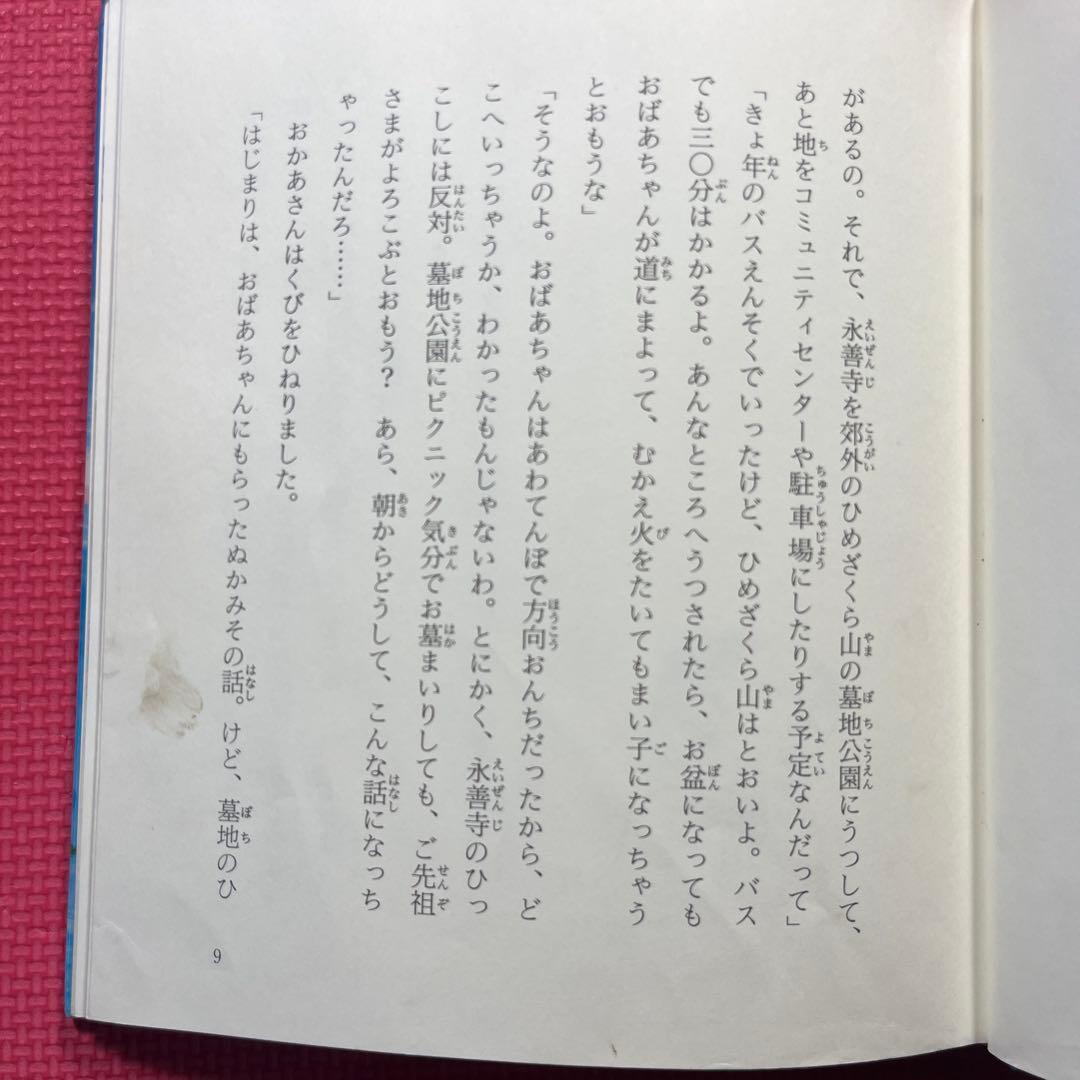 があるの。それで、永善寺を郊外のひめざくら山の墓地公園にうつして、
あと地をコミュニティセンターや駐車場にしたりする予定なんだって」
「きょ年のバスえんそくでいったけど、ひめざくら山はとおいよ。バス
でも三〇分はかかるよ。あんなところへうつされたら、お盆になっても
おばあちゃんが道にまよって、むかえ火をたいてもまい子になっちゃう
とおもうな」
「そうなのよ。おばあちゃんはあわてんぼで方向おんちだったから、ど
こへいっちゃうか、わかったもんじゃないわ。とにかく、永善寺のひっ
こしには反対。墓地公園にピクニック気分でお墓まいりしても、ご先祖
さまがよろこぶとおもう？　あら、朝からどうして、こんな話になっち
ゃったんだろ……」
おかあさんはくびをひねりました。
「はじまりは、おばあちゃんにもらったぬかみその話。けど、墓地のひ
9